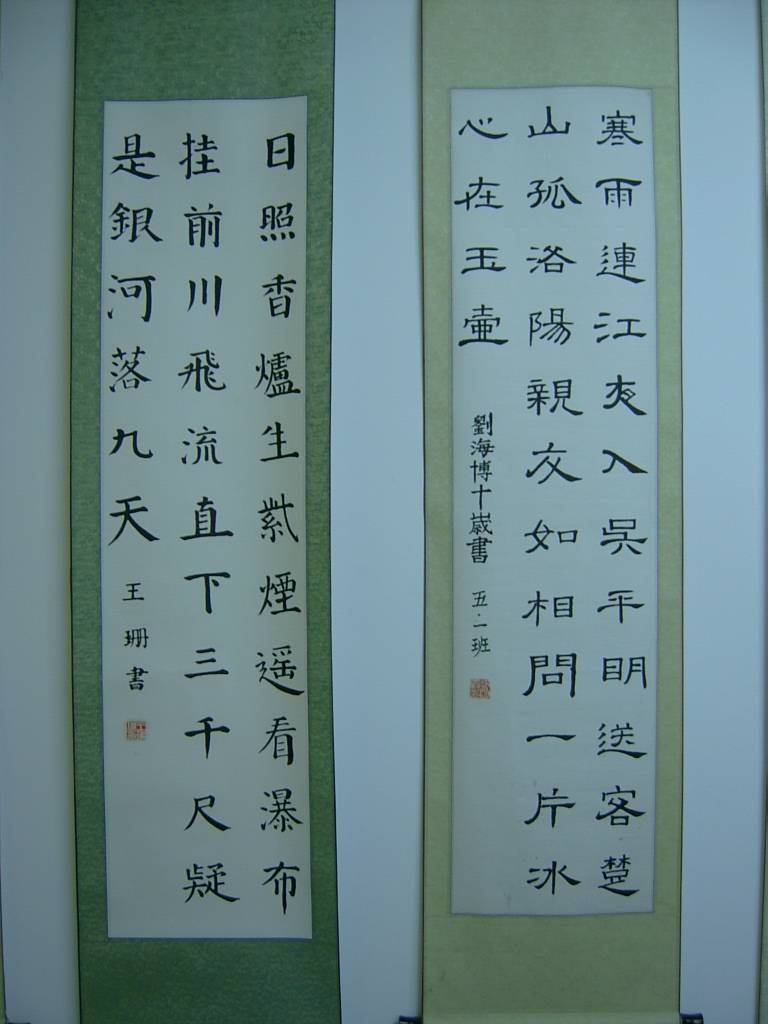 寒雨連江夜入吳平明送客楚
山孤洛陽親友如相問一片冰
心在玉壺
劉海博十歲書 五·一班
日照香爐生紫煙遥看瀑布
挂前川飛流直下三千尺疑
是銀河落九天
王珊書